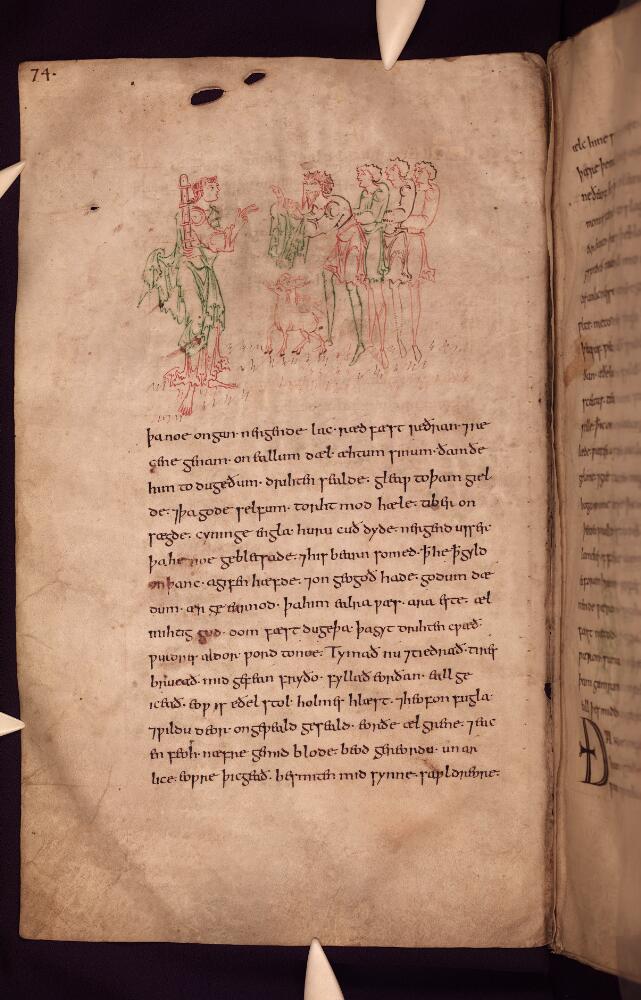 74.
þa noe ongan · nergende lac · ræd fæst reðran · 7 re
cene genam · on eallum dæl · æhtum sinum · ðam ðe
him to dugeðum · drihten sealde · gleaw to þam giel
de · 7 þa gode selfum · torht mod hæle · tiber on
sægde · cyninge engla · huru cuð dyde · nergend usser
þa he noe gebletsade · 7 his bearn somed · ꝥ he ꝥ gyld
on þanc · agifen hæfde · 7 on geogoð hade · godum dæ
dum · ær ge earnod · þa him ealra wæs · ara este · æl
mihtig god · dom fæst dugeþa · þa gyt drihten cwæð ·
wuldris aldor word to noe · Tymað nu 7 tiedrað · tires
brucað · mid gefean fryðo · fyllað eorðan · eall ge
iceað · eow is eðel stol · holmes hlæst · 7 heofon fuglas
7 wildu deor · on geweald geseald · eorðe æl grene · 7 eac
en feoh · næfre ge mid blode · beod gereordu · un ar
lice · eowre þicgeað · besmiten mid synne · sawldreore ·